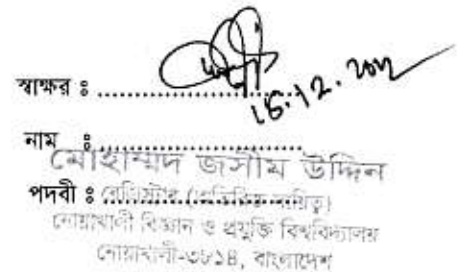 স্বাক্ষর ঃ ....................
নাম ঃ ....................
মোহাম্মদ জসীম উদ্দিন
পদবী ঃ রেজিস্ট্রার (অতিরিক্ত দায়িত্ব)
নোয়াখালী বিজ্ঞান ও প্রযুক্তি বিশ্ববিদ্যালয়
নোয়াখালী-৩৮১৪, বাংলাদেশ